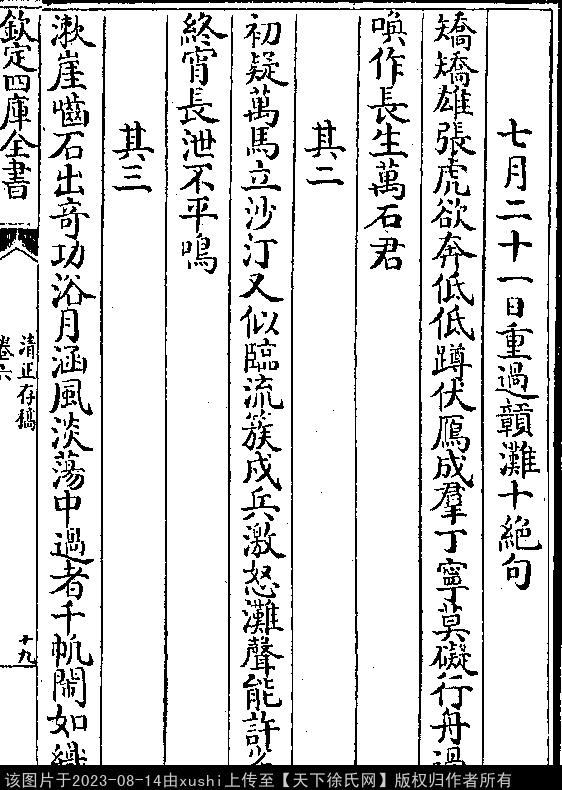 七月二十一日重過贛灘十絶句
矯矯雄張虎欲奔低低蹲伏鴈成羣丁寧莫礙行舟過
喚作長生萬石君
其二
初疑萬馬立沙汀又似臨流簇戍兵激怒灘聲能許
終宵長泄不平鳴
其三
漱崖嚙石出竒功浴月涵風淡蕩中過者千帆閙如織
欽定四庫全書
清正存稿
卷六
十九
该图片于2023-08-14由xushi上传至【天下徐氏网】版权归作者所有